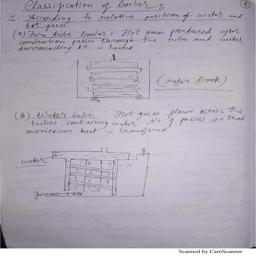 Classification of boiler
1. According to relative position of water and
hot gases
(a) Fire tube boiler: Hot gases produced after
combustion passes through the tube and water
surrounding it is heated
(refer book)
(b) Water tube: Hot gases flows across the
tubes containing water No of passes so that
maximum heat is transferred
water
furnace
Scanned by CamScanner